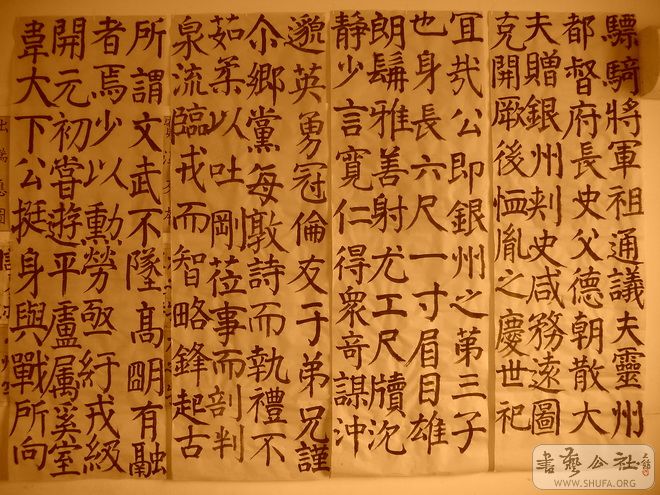 驃騎將軍祖通議夫靈州
都督府長史父德朝散大
夫贈銀州刾史咸務遠圖
克開厥後恤胤之慶世祀
宜哉公即銀州之第三子
也身長六尺一寸眉目雄
朗雅善射尤工尺牘沉
靜少言寬仁得眾奇謀沖
邈英勇冠倫友于弟兄謹
尒鄉黨每敦詩而執禮不
茹柔以吐剛蒞事而剖判
泉流臨戎而智略鋒起古
所謂文武不墜高明有融
者焉少以勳勞亟紆戎級
開元初嘗遊平盧屬奚室
韋大下公挺身與戰所向
書藝公社
WWW.SHUFA.ORG